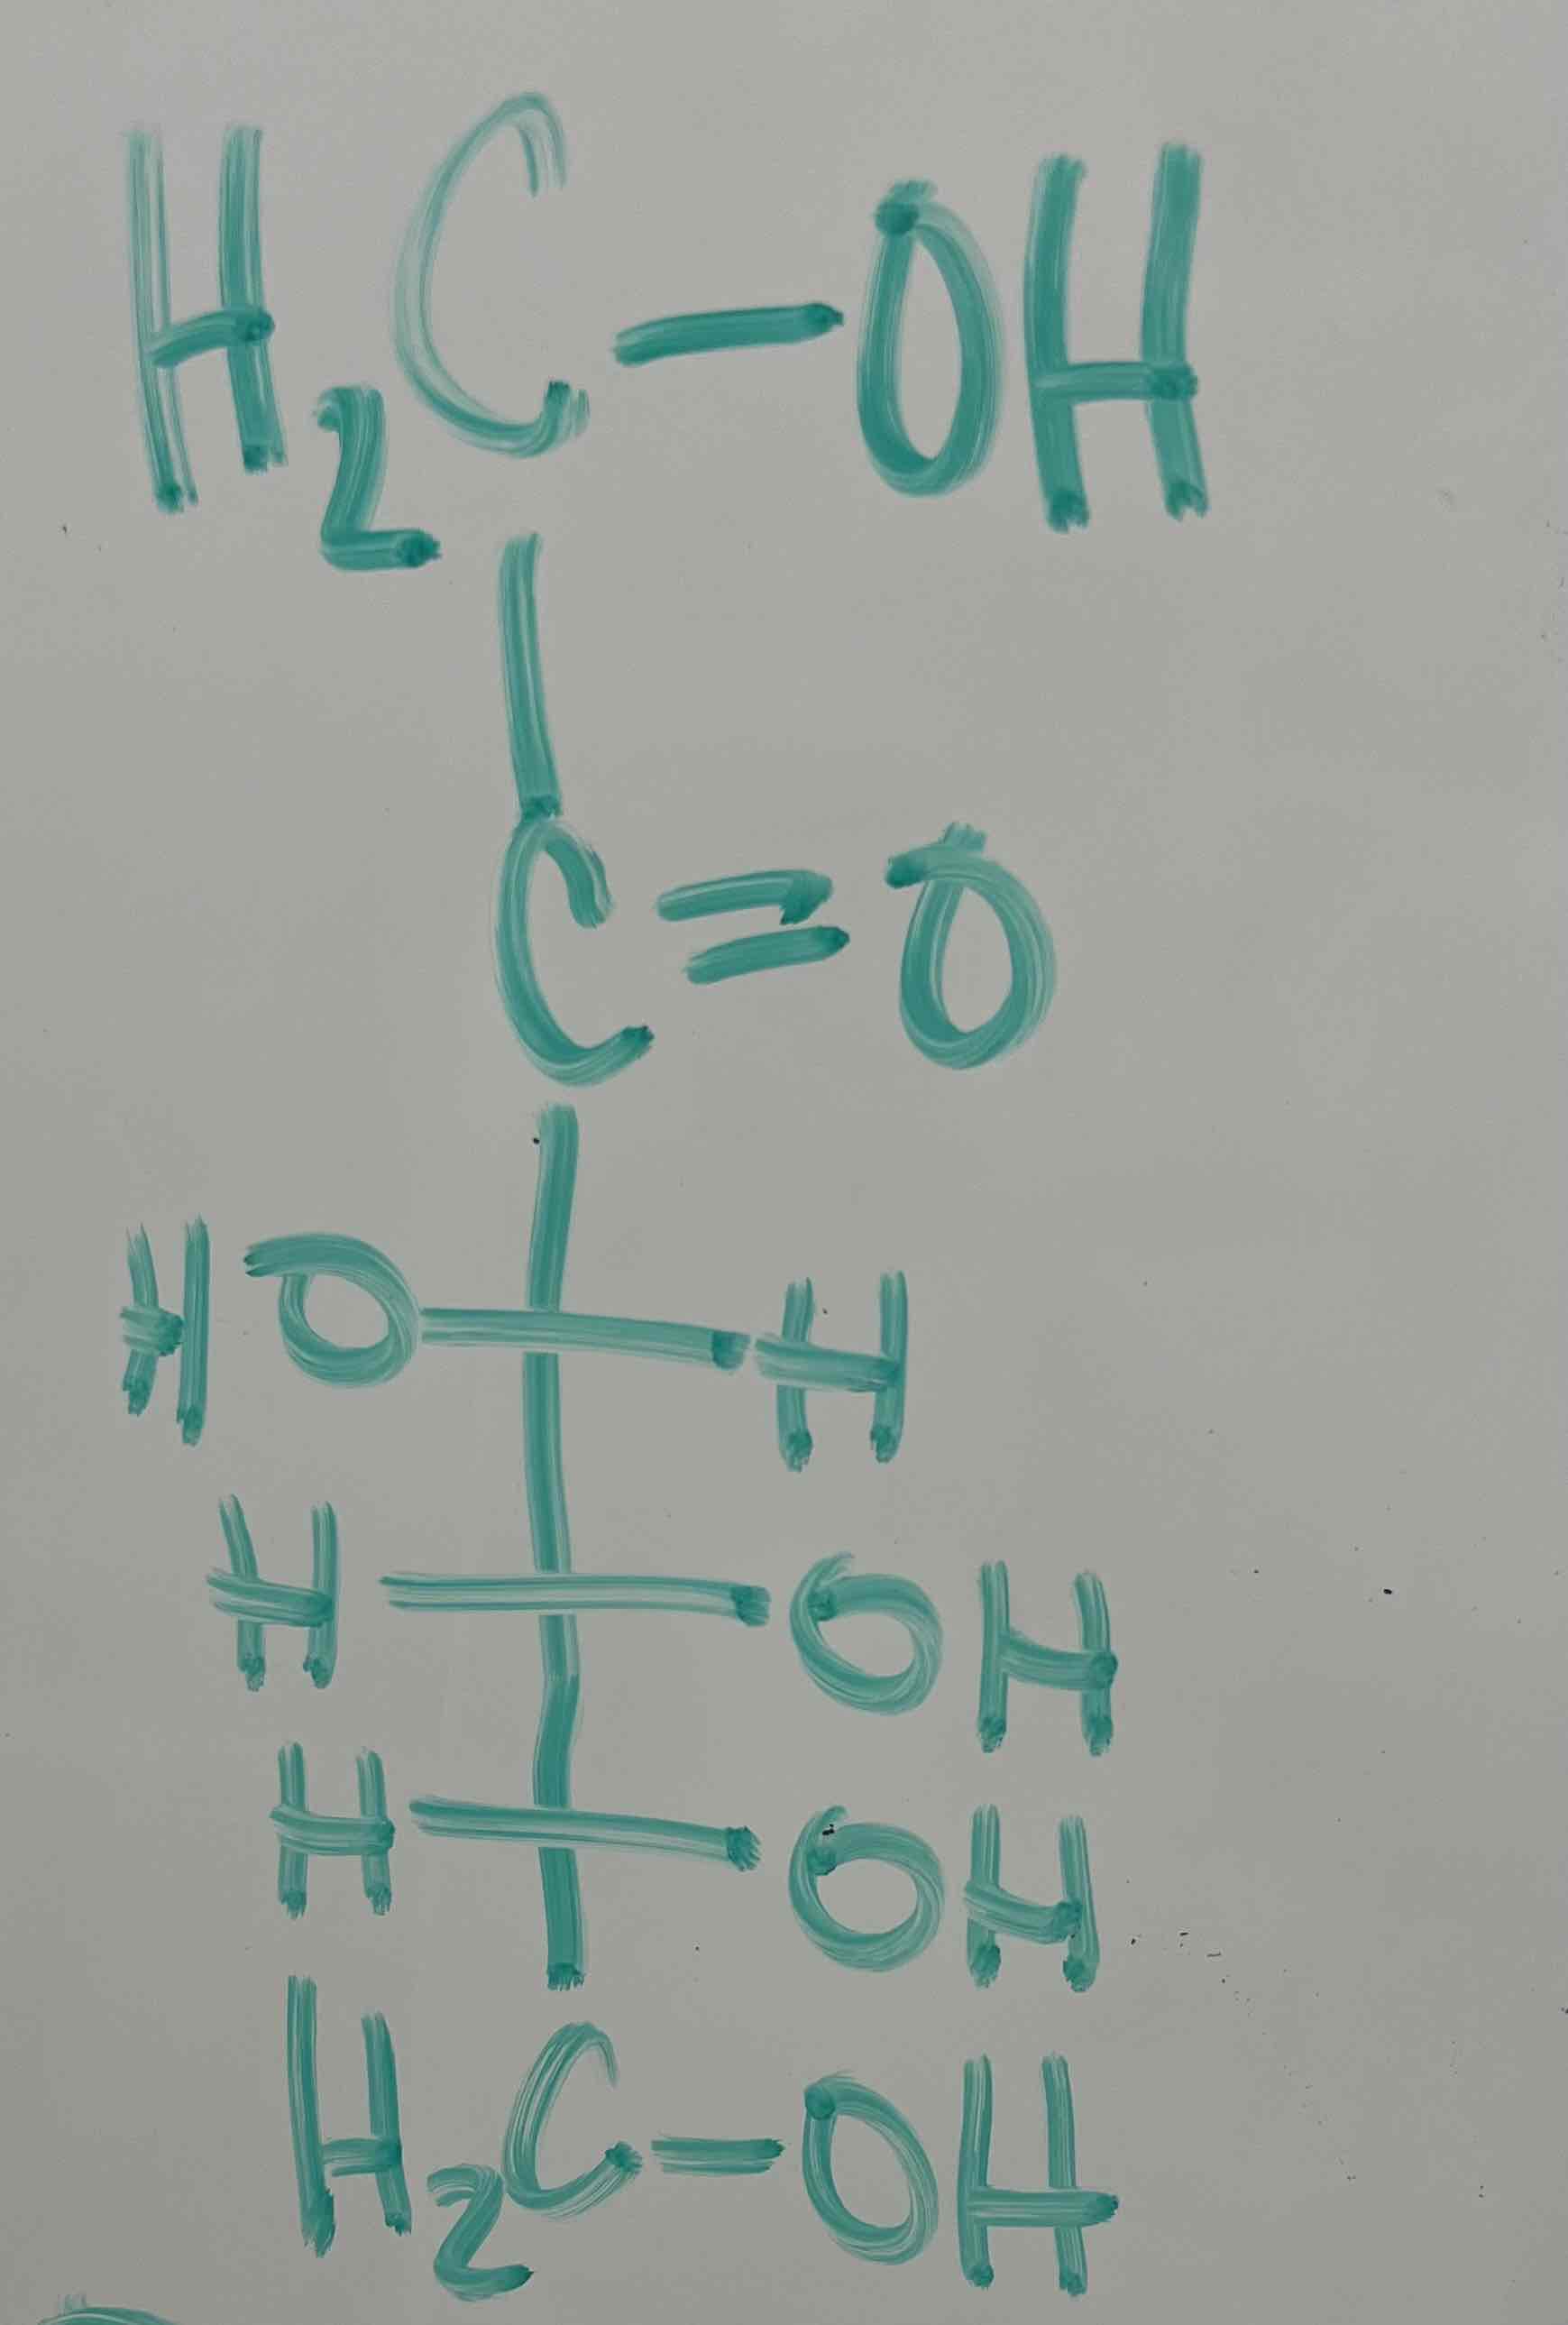 H2C-OH
C=O
HO H
H OH
H OH
H2C-OH